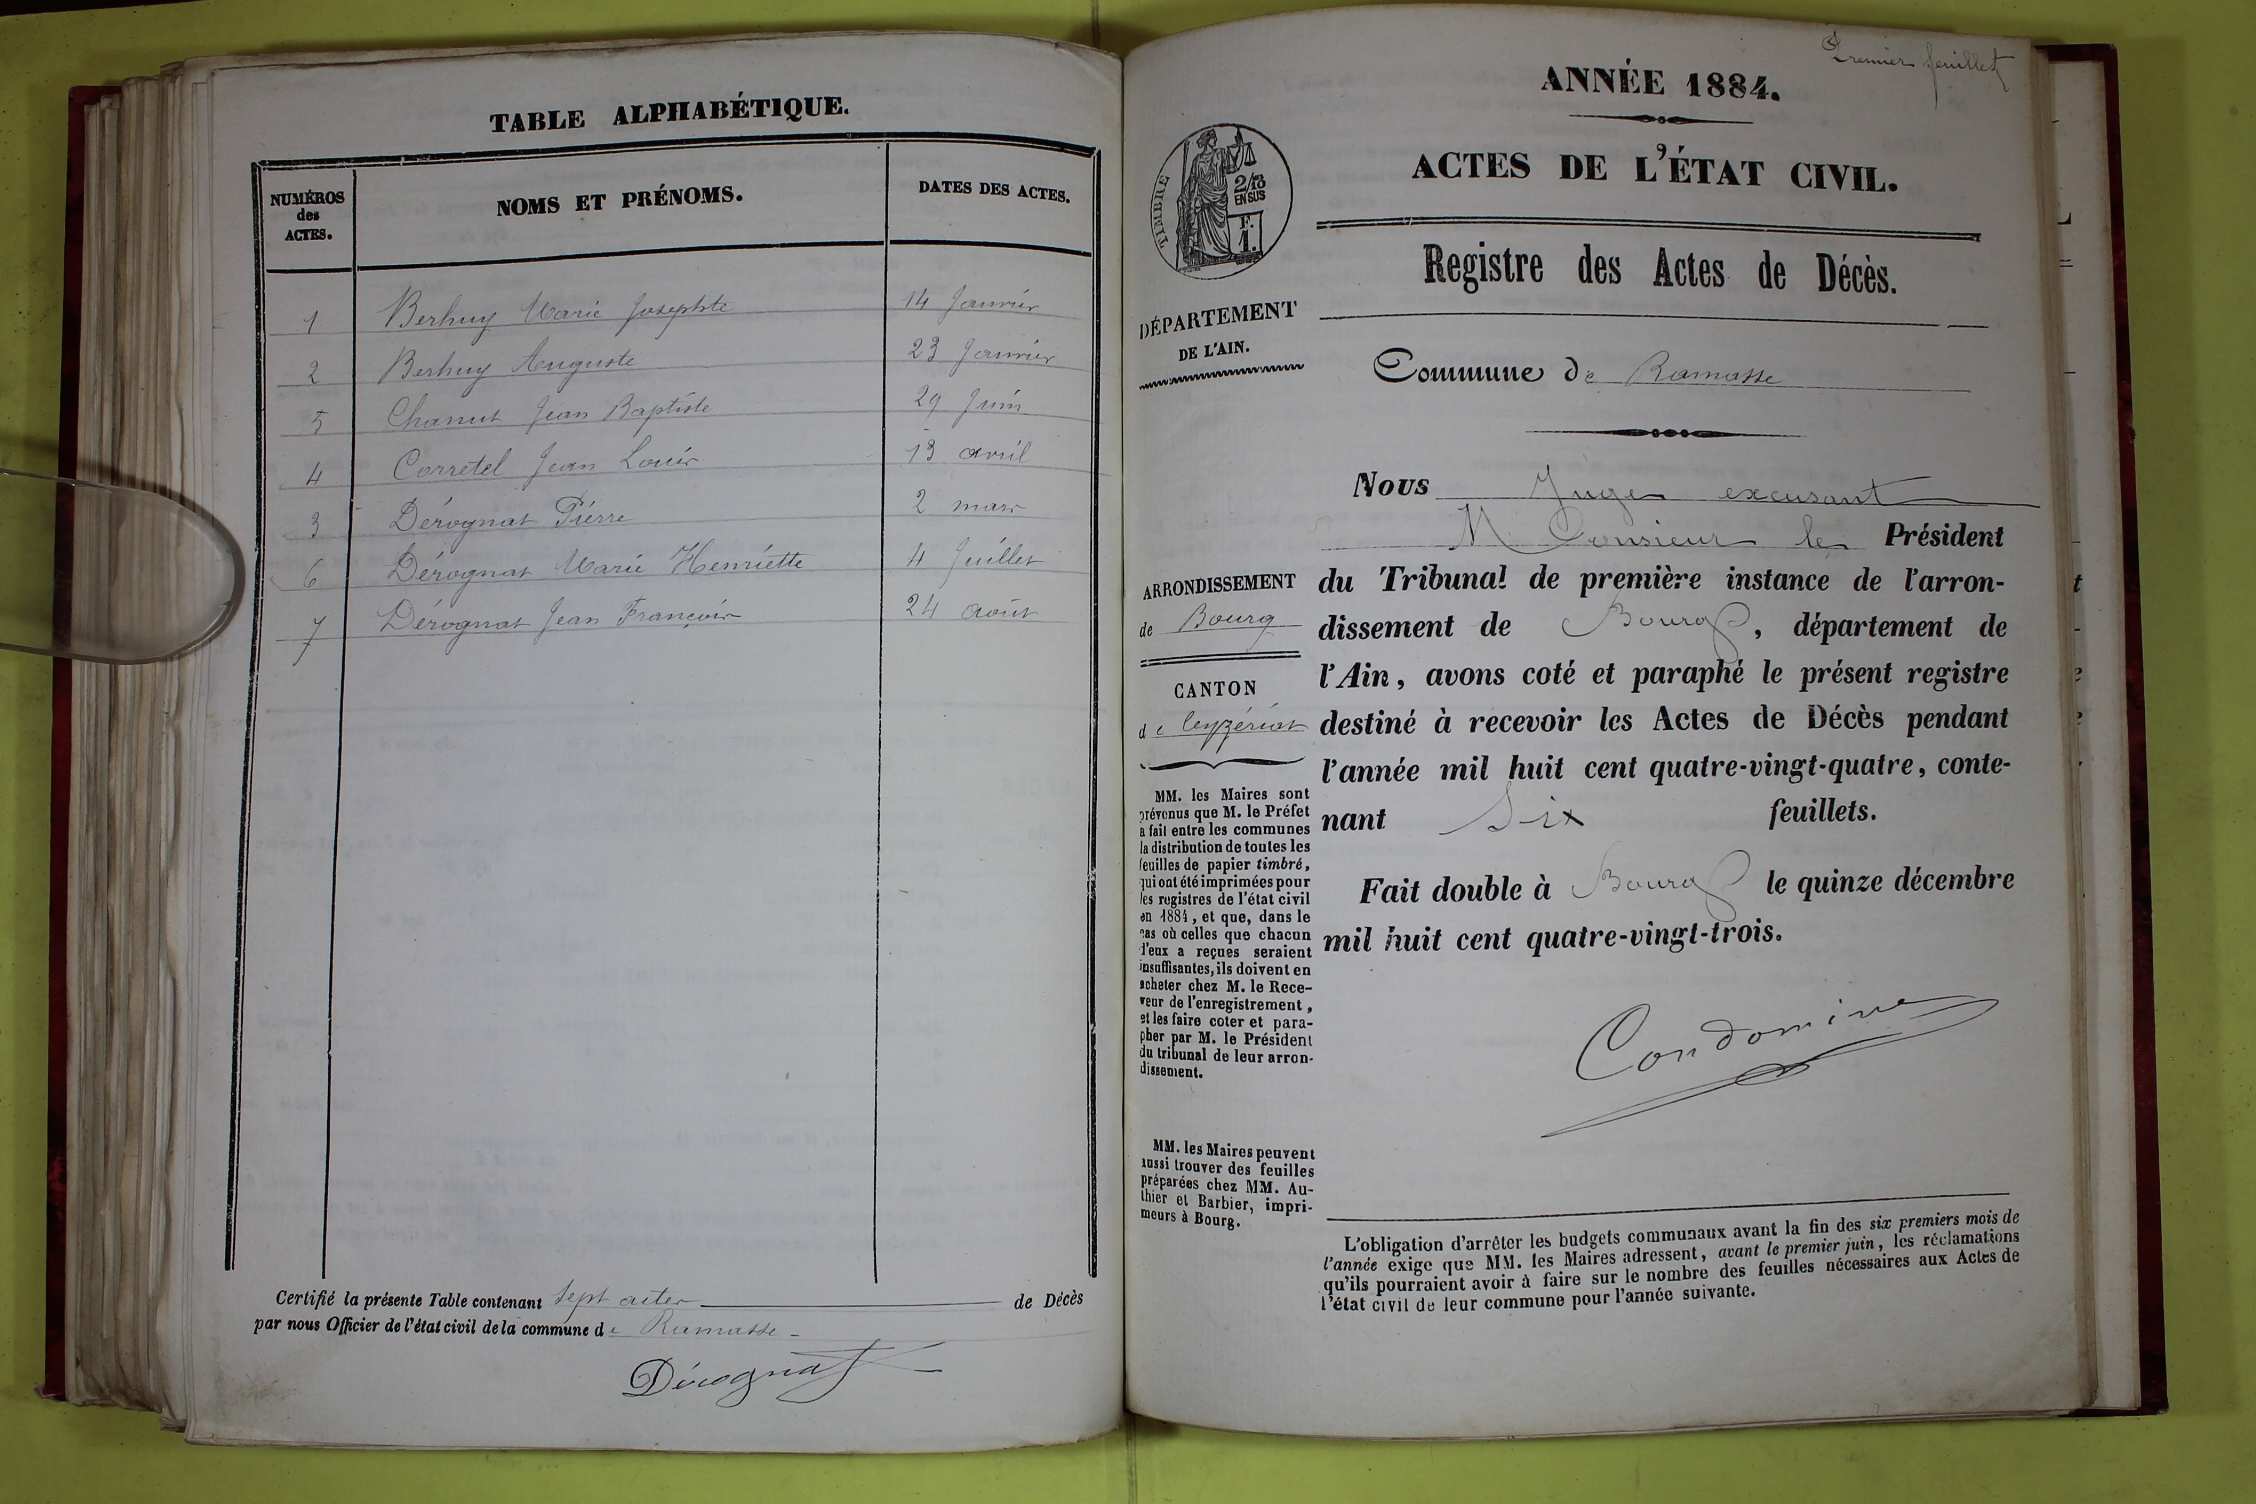 TABLE ALPHABÉTIQUE.
NUMÉROS des ACTES. NOMS ET PRÉNOMS. DATES DES ACTES.
1 Berhuy Marie Josephte 14 Janvier
2 Berhuy Auguste 23 Janvier
5 Chanut Jean Baptiste 29 Juin
4 Corretel Jean Louis 13 avril
3 Dérognat Pierre 2 mars
6 Dérognat Marie Henriette 4 Juillet
7 Dérognat Jean François 24 août
Certifié la présente Table contenant Sept actes de Décès
par nous Officier de l'état civil de la commune de Ramasse
Dérognat
Premier feuillet
ANNÉE 1884.
ACTES DE L'ÉTAT CIVIL.
TIMBRE
2/10
EN SUS
F.
1.
Registre des Actes de Décès.
DÉPARTEMENT
DE L'AIN.
Commune de Ramasse
ARRONDISSEMENT
de Bourg
CANTON
de Ceyzériat
MM. les Maires sont
prévenus que M. le Préfet
a fait entre les communes
la distribution de toutes les
feuilles de papier timbré,
qui ont été imprimées pour
les registres de l'état civil
en 1884, et que, dans le
cas où celles que chacun
d'eux a reçues seraient
insuffisantes, ils doivent en
acheter chez M. le Rece-
veur de l'enregistrement,
et les faire coter et para-
pher par M. le Président
du tribunal de leur arron-
dissement.
MM. les Maires peuvent
aussi trouver des feuilles
préparées chez MM. Au-
thier et Barbier, impri-
meurs à Bourg.
Nous Juge excusant
Monsieur le Président
du Tribunal de première instance de l'arron-
dissement de Bourg, département de
l'Ain, avons coté et paraphé le présent registre
destiné à recevoir les Actes de Décès pendant
l'année mil huit cent quatre-vingt-quatre, conte-
nant Six feuillets.
Fait double à Bourg le quinze décembre
mil huit cent quatre-vingt-trois.
Condomine
L'obligation d'arrêter les budgets communaux avant la fin des six premiers mois de
l'année exige que MM. les Maires adressent, avant le premier juin, les réclamations
qu'ils pourraient avoir à faire sur le nombre des feuilles nécessaires aux Actes de
l'état civil de leur commune pour l'année suivante.